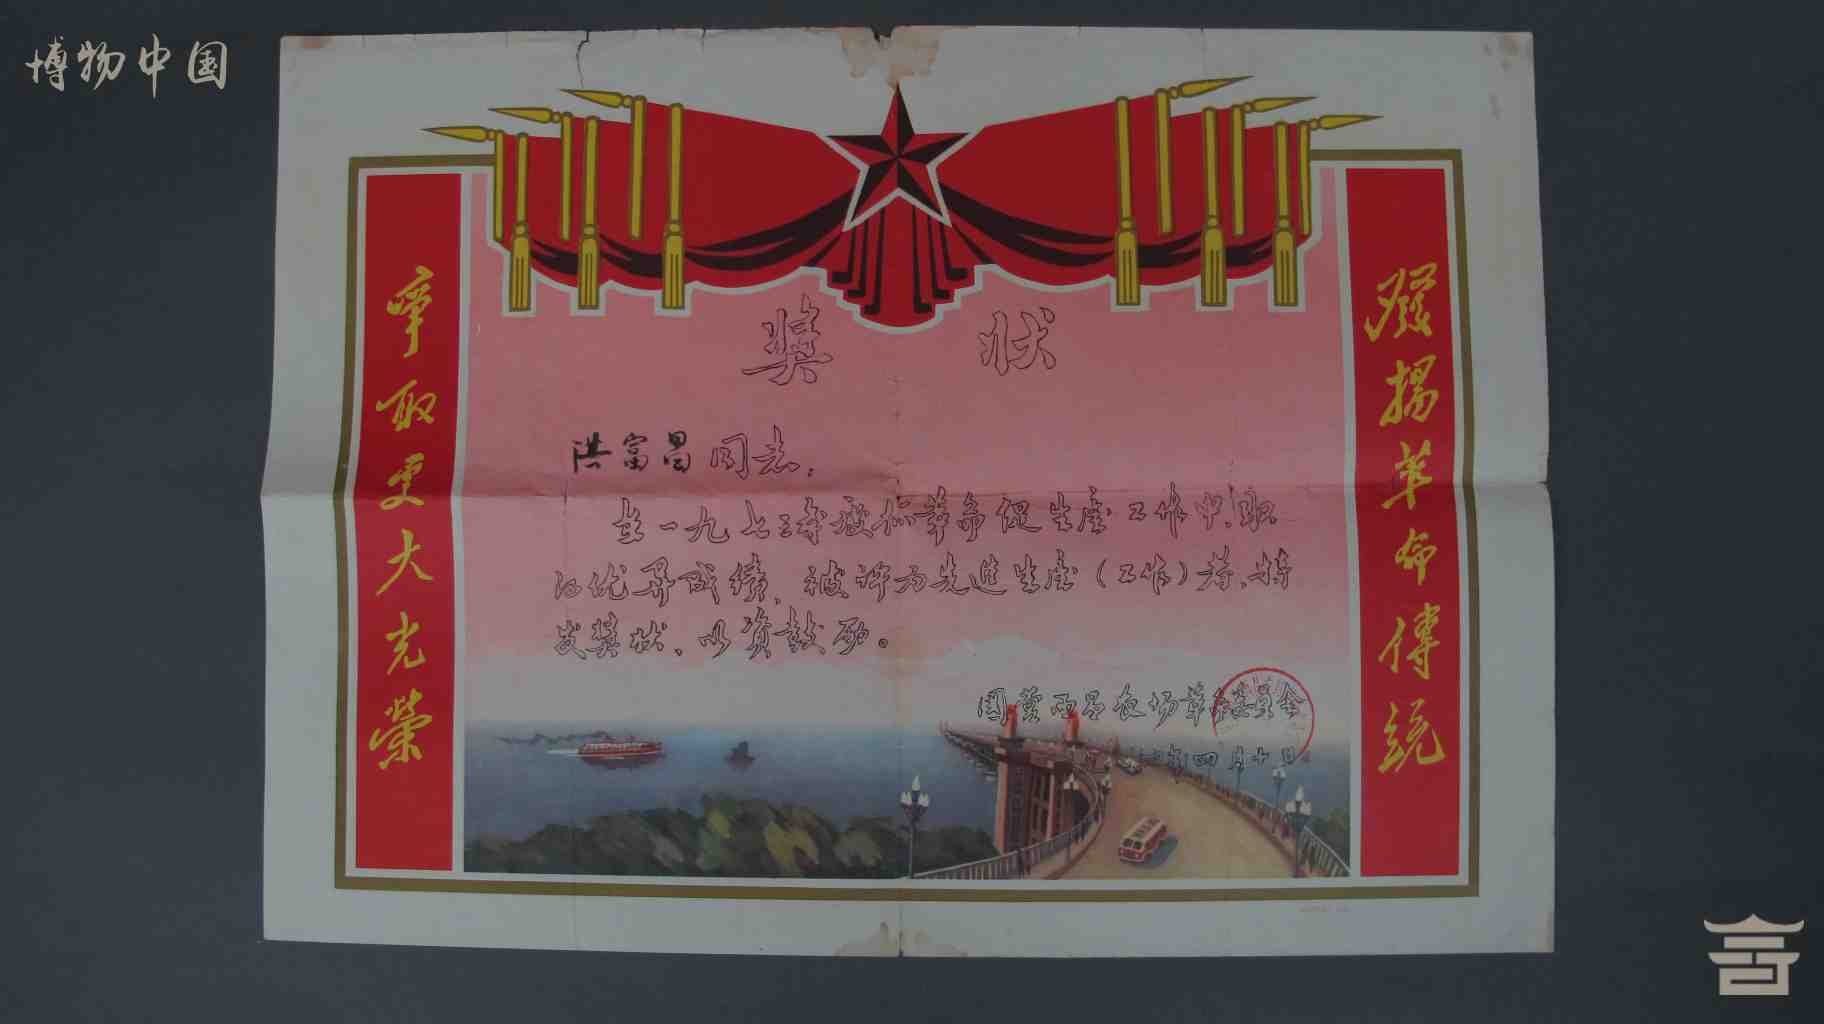 博物中国
發揚革命傳統
爭取更大光榮
奖状
洪富昌同志：
在一九七三年抓革命促生产工作中，取
得优异成绩，被评为先进生产（工作）者，特
发奖状，以资鼓励。
国营西昌农场革命委员会
四月十日